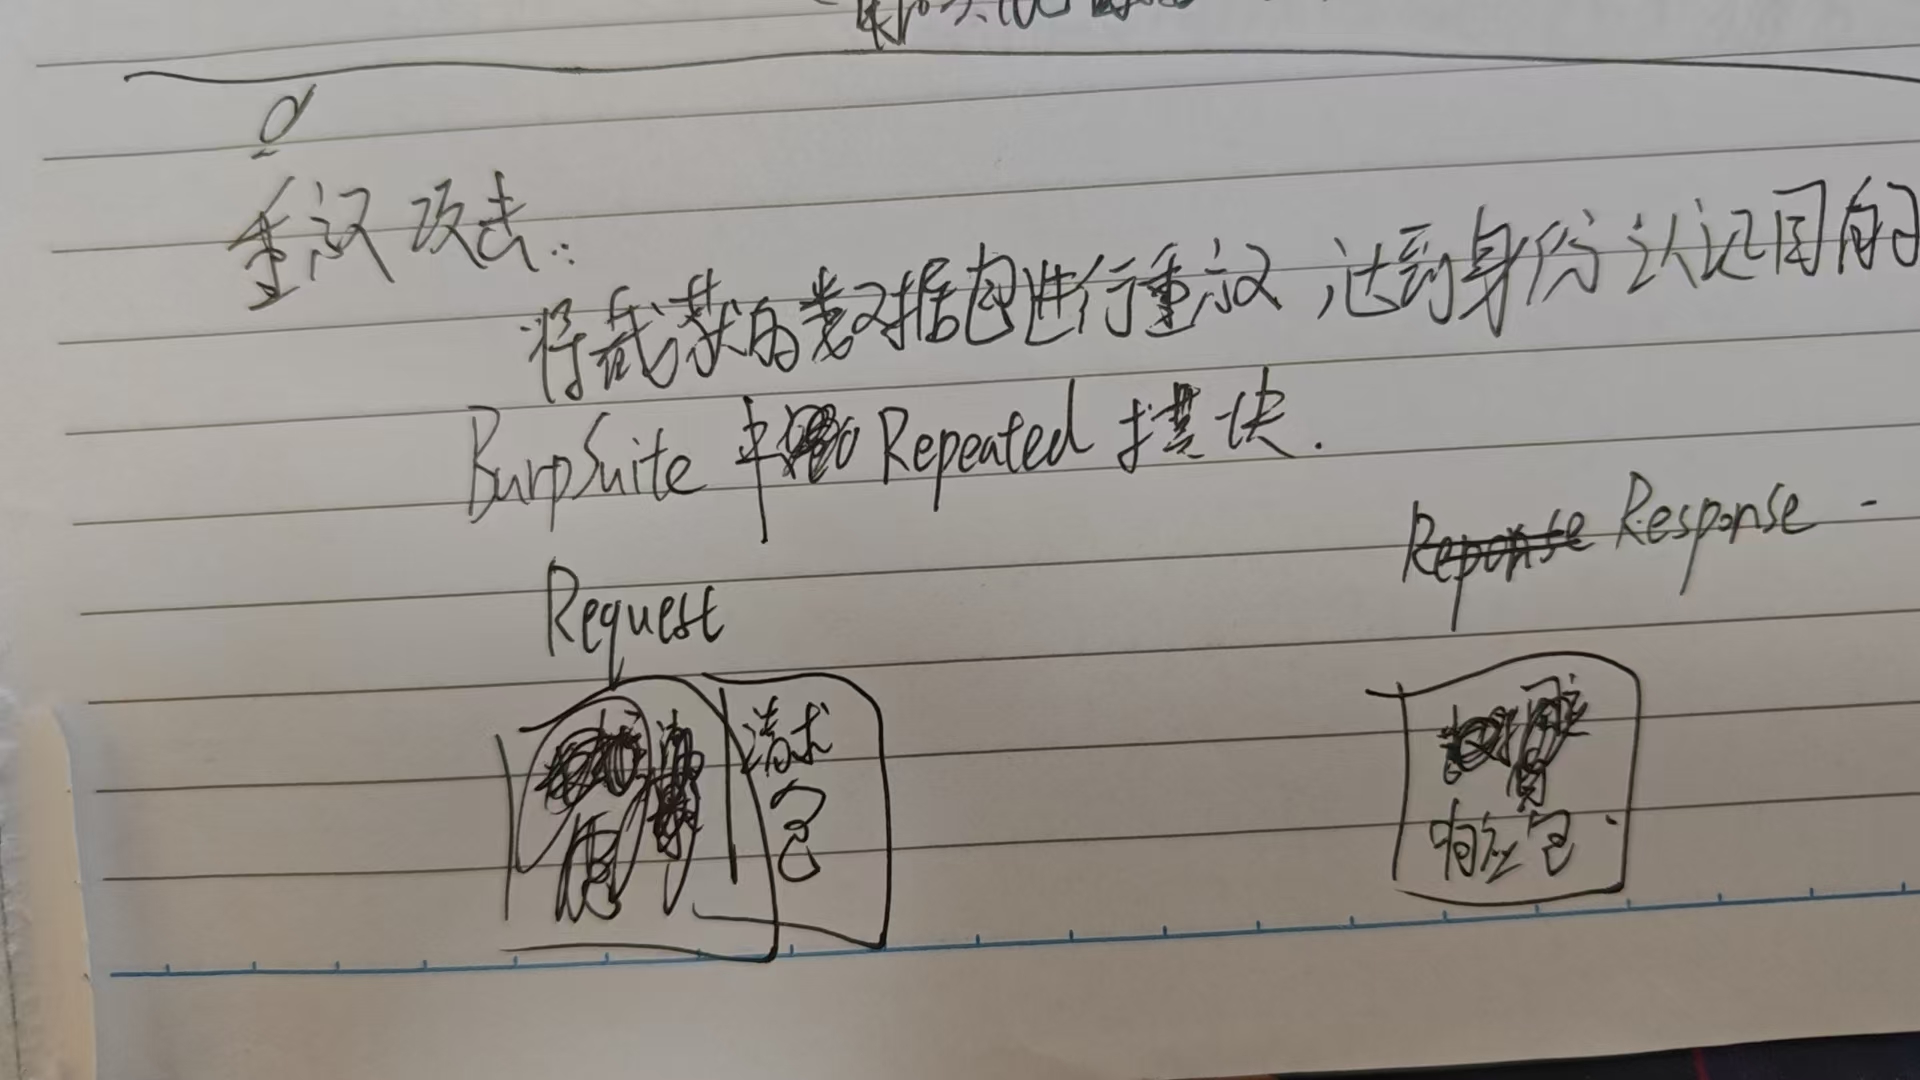 重汉攻击:
将截获的数据包进行重汉,达到身份认证目的
BurpSuite 中 Repeated 模块.
Request
Reponse Response
请求
包
响应包